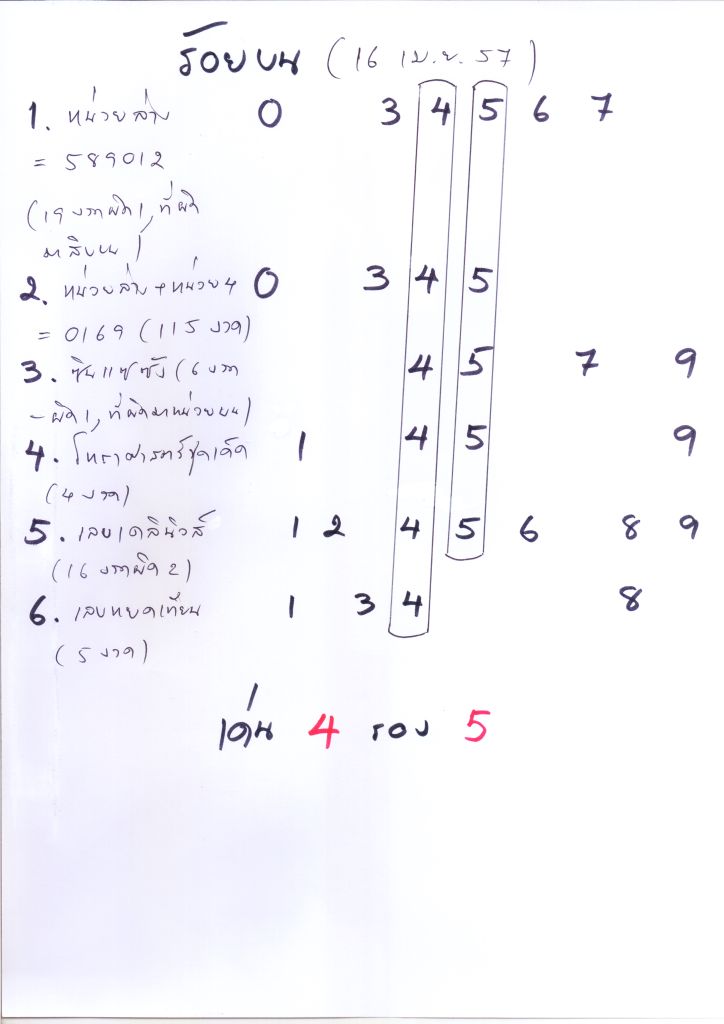 ร้อยบน (16 เม.ย. 57)
1. หน่วยล่าง 0 3 4 5 6 7
= 589012
(19 งวดผิด 1, ที่ผิด
มาสิบบน)
2. หน่วยล่าง+หน่วย 4 0 3 4 5
= 0169 (115 งวด)
3. ซินแซซัง (6 งวด 4 5 7 9
-ผิด 1, ที่ผิดมาหน่วยบน)
4. โหราศาสตร์ชุดเด็ด 1 4 5 9
(4 งวด)
5. เลขเดลินิวส์ 1 2 4 5 6 8 9
(16 งวดผิด 2)
6. เลขหยดเทียน 1 3 4 8
(5 งวด)
เด่น 4 รอง 5